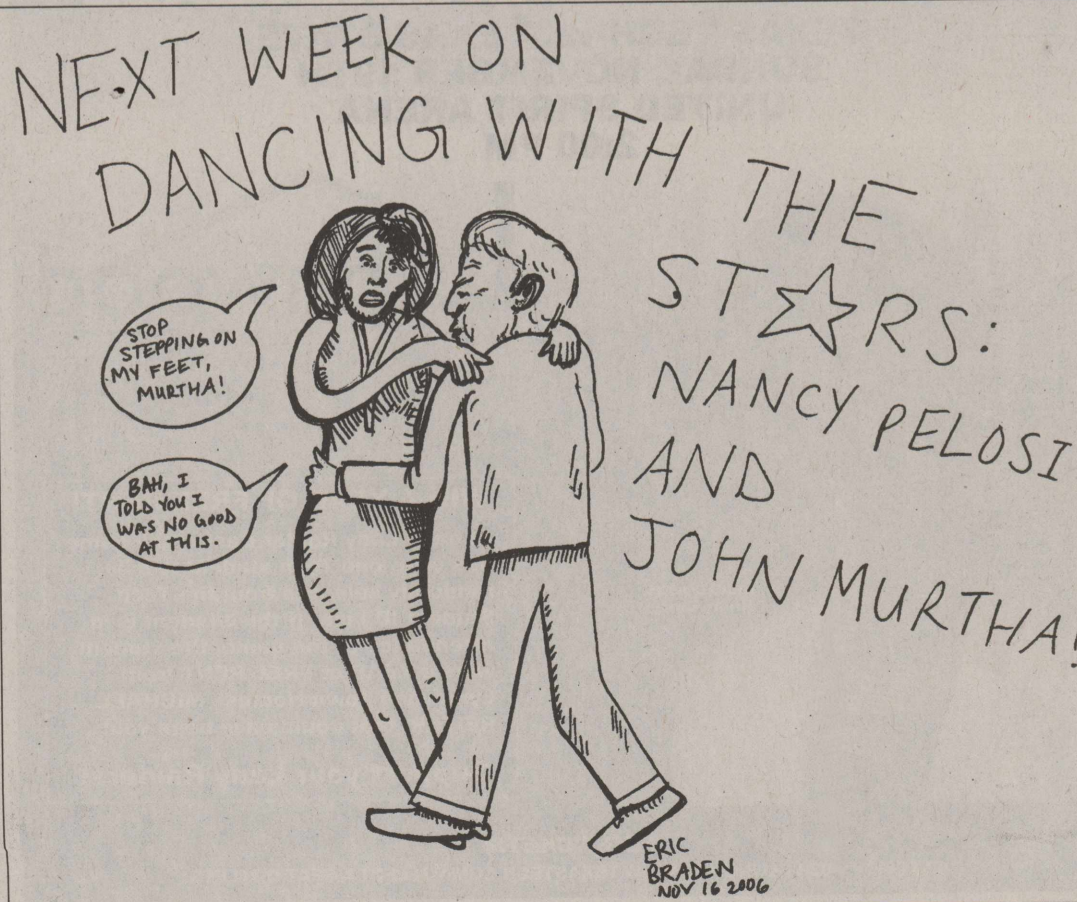 NEXT WEEK ON
DANCING WITH THE
ST☆RS:
NANCY PELOSI
AND
JOHN MURTHA!
STOP
STEPPING ON
MY FEET,
MURTHA!
BAH, I
TOLD YOU I
WAS NO GOOD
AT THIS.
ERIC
BRADEN
NOV 16 2006